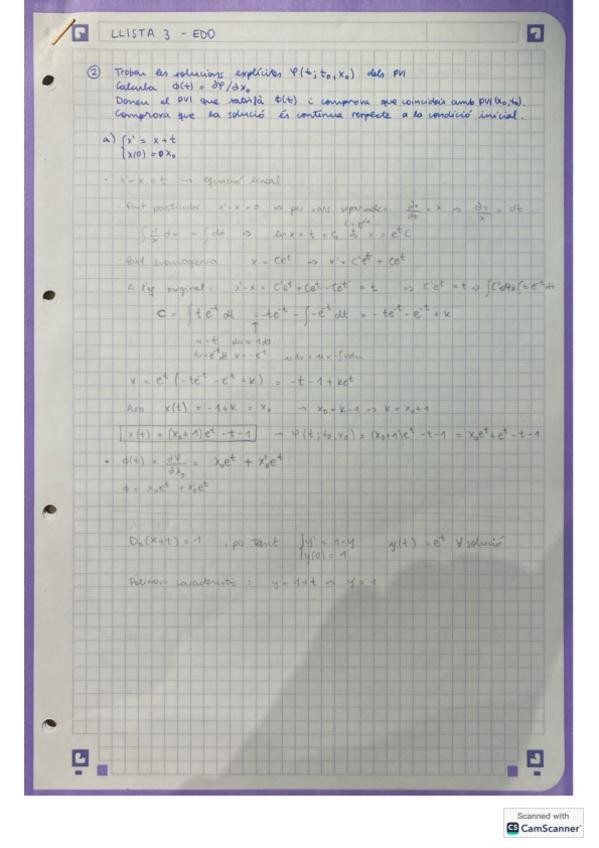 LLISTA 3 - EDO
② Trobeu les solucions explícites φ(t; t₀, x₀) dels PVI
Calcula ϕ(t) = ∂φ/∂x₀
Doneu el PVI que satisfà ϕ(t) i comprova que coincideix amb PVI(x₀, t₀).
Comprova que la solució és contínua respecte a la condició inicial.
a) { x' = x+t
{ x(0) = x₀
• x'-x = t → equació lineal
· Part particular: x'-x=0 per vars separades: dx/dt = x ⇒ dx/x = dt
∫ 1/x dx = ∫ dt ⇒ ln x = t + C₀ ⇒ x = e^t C
x = Ce^t ⇒ x' = C'e^t + Ce^t
original: x'-x = C'e^t + Ce^t - Ce^t = t ⇒ C'e^t = t ⇒
C = ∫ t e^-t dt = -te^-t - ∫ -e^-t dt = -te^-t - e^-t + k
u=t du=1dt
x = e^t (-te^-t - e^-t + k) = -t-1+ke^t
Ara x(t) = -1+k = x₀ → x₀ = k-1 ⇒ k = x₀+1
x(t) = (x₀+1)e^t -t-1 → φ(t; t₀, x₀) = (x₀+1)e^t -t-1 = x₀e^t + e^t -t-1
• ϕ(t) = ∂φ/∂x₀ = x₀e^t + x₀'e^t
ϕ = x₀e^t + x₀'e^t
Dₓ(x+t) = 1 , per tant { y' = 1-y y(t) = e^t ∀ solució
{ y(0) = 1
y = 1+t ⇒ y = 1
Scanned with
CS CamScanner